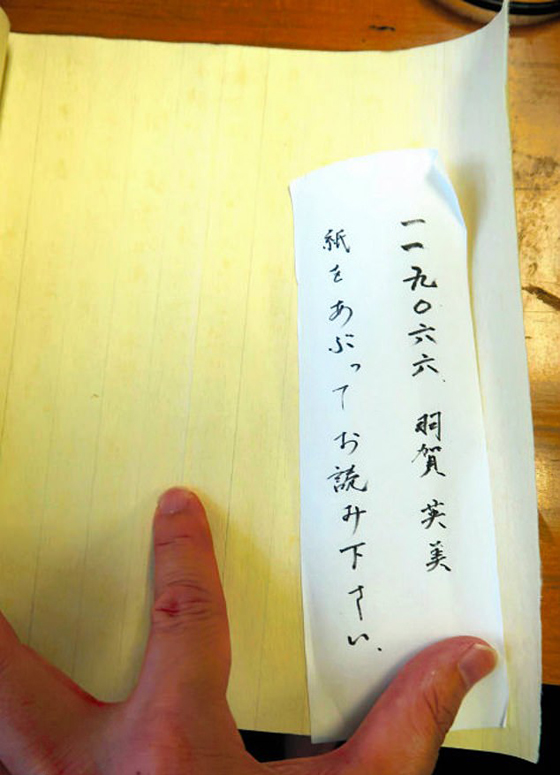 一一九〇六六、羽賀 英美
紙をあぶってお読み下さい、